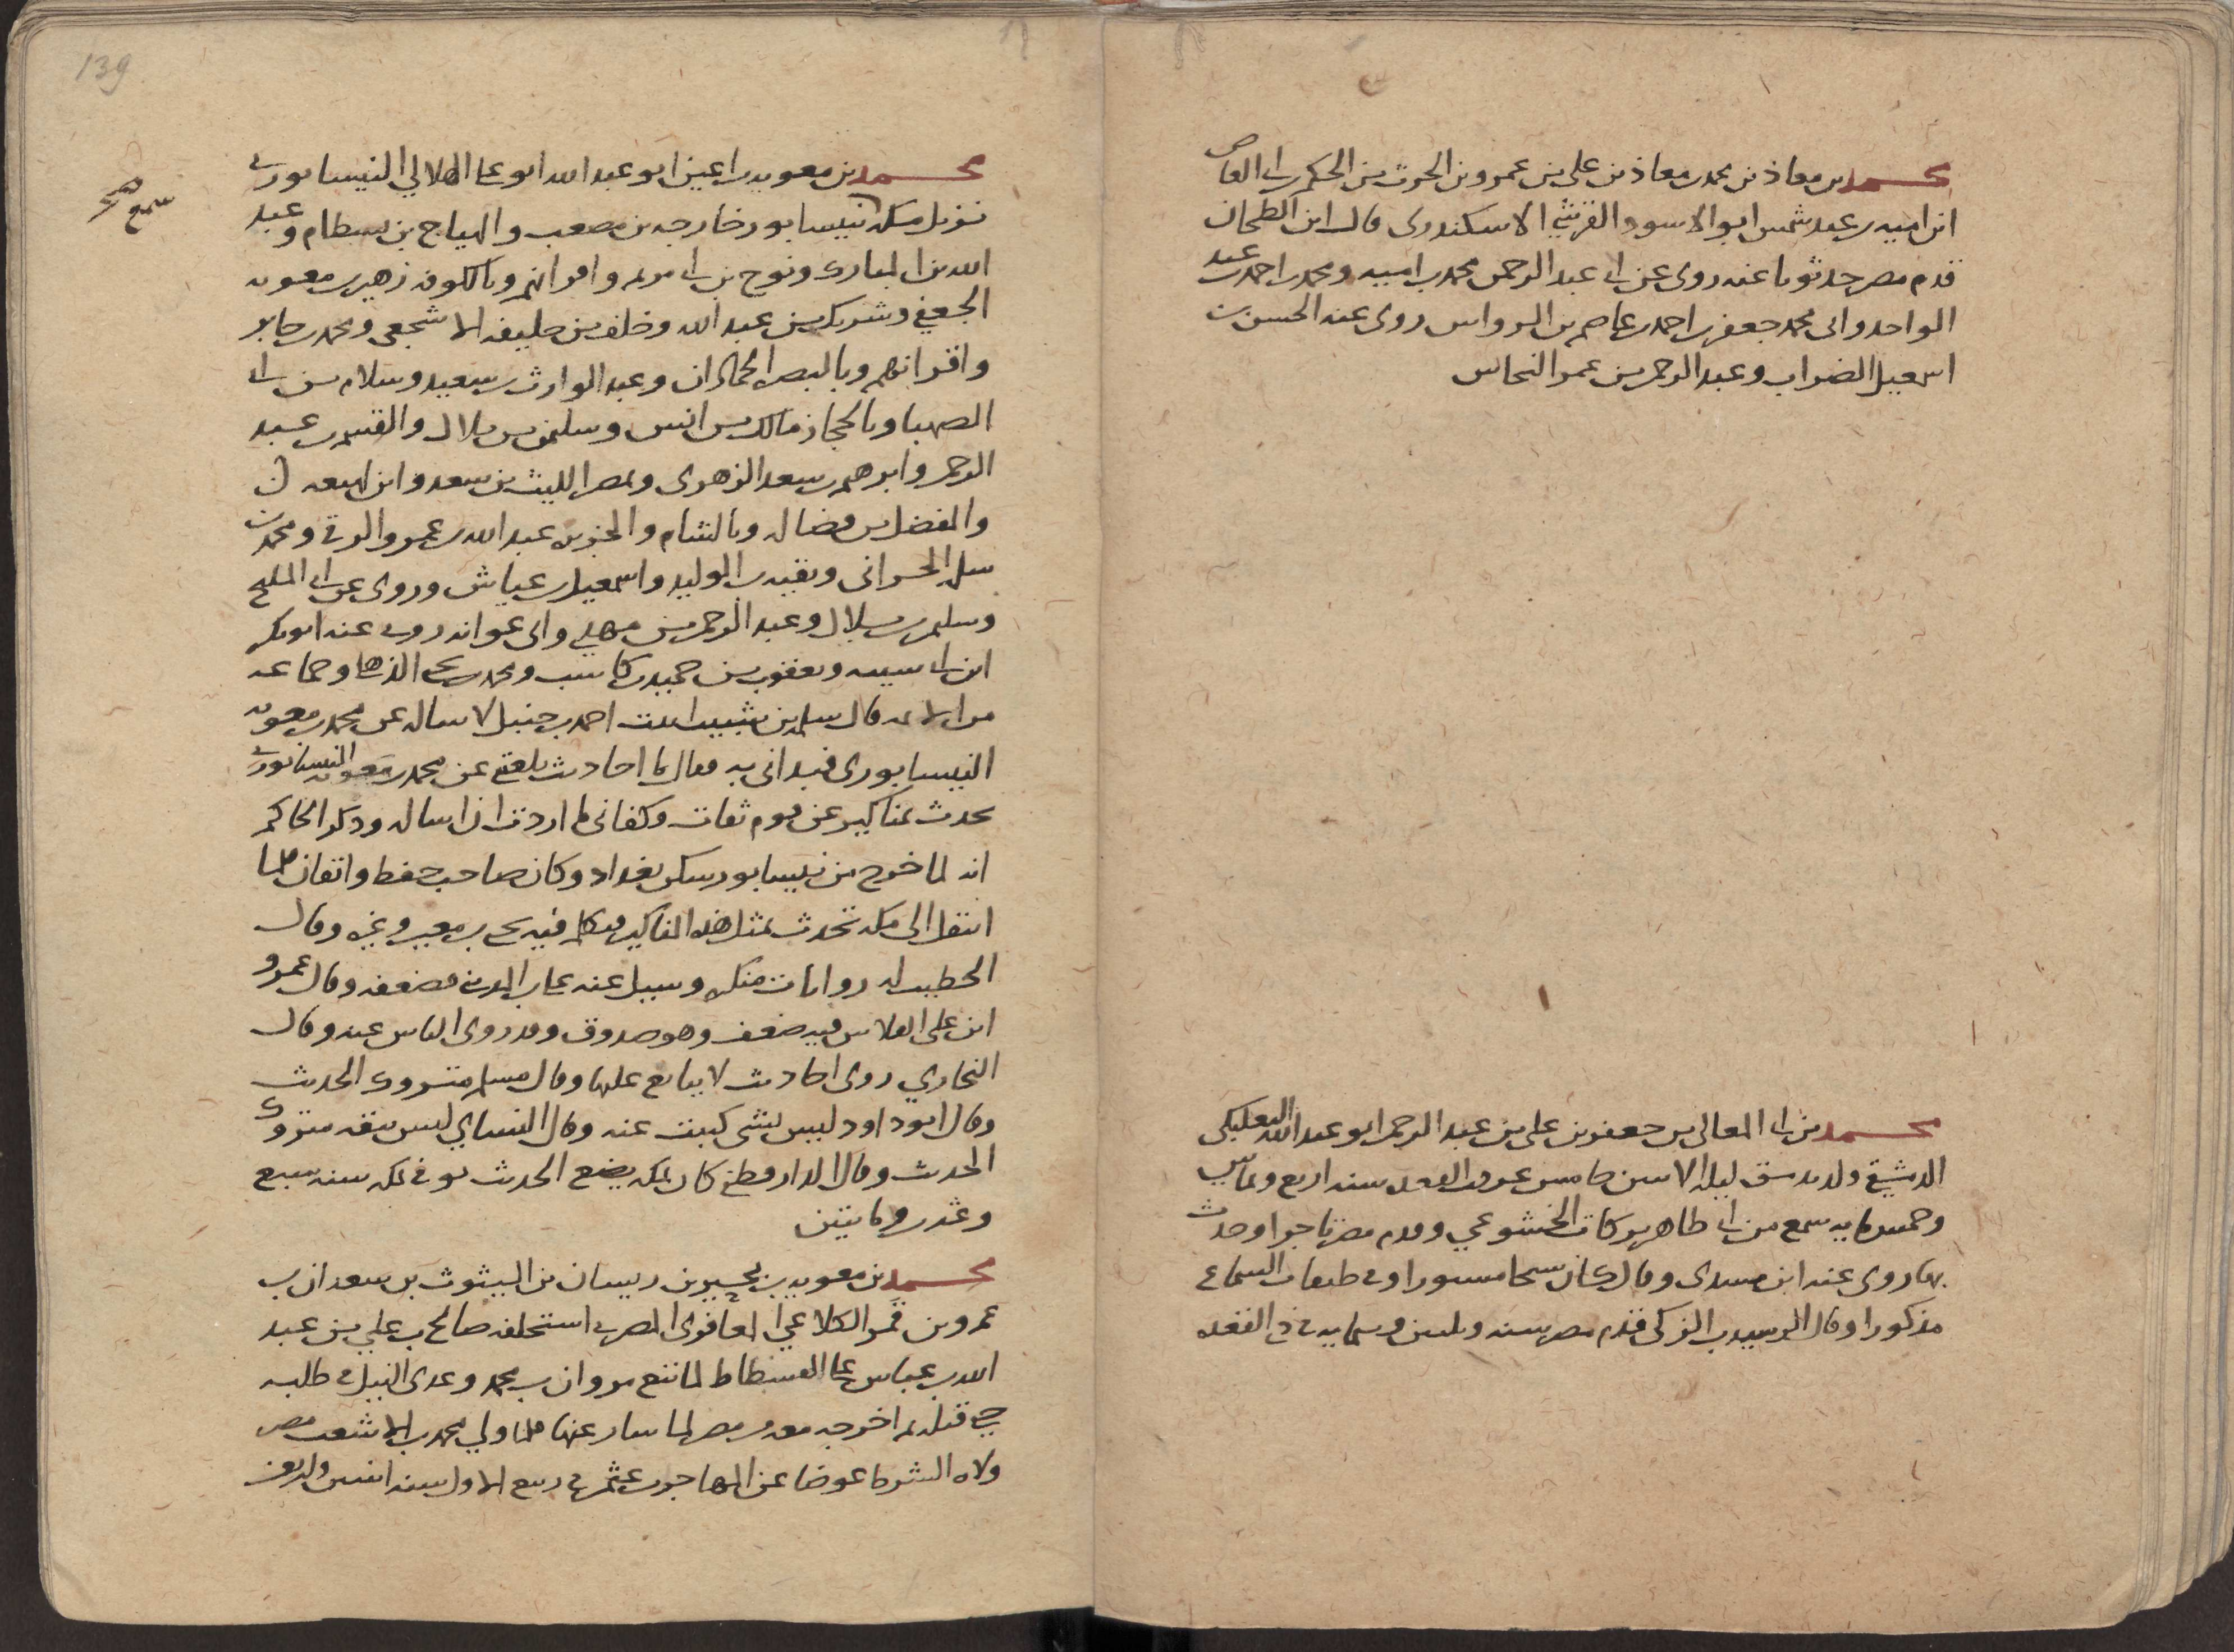 محمد بن معاذ بن محمد بن معاذ بن على بن عمرو بن الحرث بن الحكم بن ابى العاص
ابن اميه بن عبد شمس ابو الاسود القرشي الاسكندرى قال ابن الطحان
قدم مصر حدثونا عنه روى عن ابى عبد الرحمن محمد بن اميه ومحمد بن احمد بن عبد
الواحد وابى محمد جعفر بن احمد بن عاصم بن الرواس روى عنه الحسن بن
اسمعيل الضراب وعبد الرحمن بن عمر النحاس
محمد بن ابى المعالى بن جعفر بن على بن عبد الرحمن ابو عبد الله البعلبكى
الدمشقي ولد بدمشق ليله الاثنين خامس عشر ذى القعده سنه اربع وثمانين
وخمس مايه سمع من ابى طاهر بركات الخشوعي وقدم مصر تاجرا وحدث
بها روى عنه ابن مسدى وقال كان شيخا مستورا وفى طبقات السماع
مذكورا وقال الرشيد بن الزكى قدم مصر سنه وثلثين وستمايه فى ذى القعده
139
محمد بن معويه بن اعين ابو عبد الله ابو على الهلالي النيسابورى
نزيل مكه سمع بنيسابور خارجه بن مصعب والهياج بن بسطام وعبد
الله بن المبارك ونوح بن ابى مريم واقرانهم وبالكوفه زهير بن معويه
الجعفي وشريك بن عبد الله وخلف بن خليفه الاشجعى ومحمد بن جابر
واقرانهم وبالبصره الحمادان وعبد الوارث بن سعيد وسلام بن ابى
الصهبا وبالحجاز مالك بن انس وسليمن بن بلال والقسم بن عبد
الرحمن وابرهيم بن سعد الزهرى وبمصر الليث بن سعد وابن لهيعه
والمفضل بن فضاله وبالشام والجزيره عبد الله بن عمرو الرقى ومحمد بن
سلمه الحرانى وبقيه بن الوليد واسمعيل بن عياش وروى عن ابى المليح
وسليمن بن بلال وعبد الرحمن بن مهدي وابى عوانه روى عنه ابو بكر
ابن ابى شيبه ويعقوب بن حميد بن كاسب ومحمد بن يحيى الذهلى وجماعه
من الايمه قال سلمه بن شبيب اتيت احمد بن حنبل لاساله عن محمد بن معويه
النيسابورى فبدانى به فقال لى احاديث بلغتني عن محمد بن معويه النيسابورى
يحدث بمناكير عن قوم ثقات وكفانى ما اردت ان اساله وذكر الحاكم
انه لما خرج من نيسابور سكن بغداد وكان صاحب حفظ واتقان فلما
انتقل الى مكه تحدث بمثل هذه المناكير فتكلم فيه يحيى بن معين وغيره وقال
الخطيب له روايات منكره وسيل عنه على بن المدينى فضعفه وقال عمرو
ابن على الفلاس فيه ضعف وهو صدوق وقد روى الناس عنه وقال
البخاري روى احاديث لا يتابع عليها وقال مسلم متروك الحديث
وقال ابو داود ليس بشى كتبت عنه وقال النساي ليس بثقه متروك
الحديث وقال الدارقطني كان بمكه يضع الحديث توفى بمكه سنه سبع
وعشرين ومايتين
محمد بن معويه بن بحير بن ريسان بن البيثوث بن سعدان بن
عمرو بن قمر الكلاعي المعافرى المصرى استخلفه صالح بن علي بن عبد
الله بن عباس على الفسطاط لما تتبع مروان بن محمد وعدى النيل فى طلبه
حتى قتله ثم اخرجه معه من مصر لما سار عنها فلما ولي محمد بن الاشعث مصر
ولاه الشرطه عوضا عن المهاجر بن عثمن فى ربيع الاول سنه اثنين واربعين